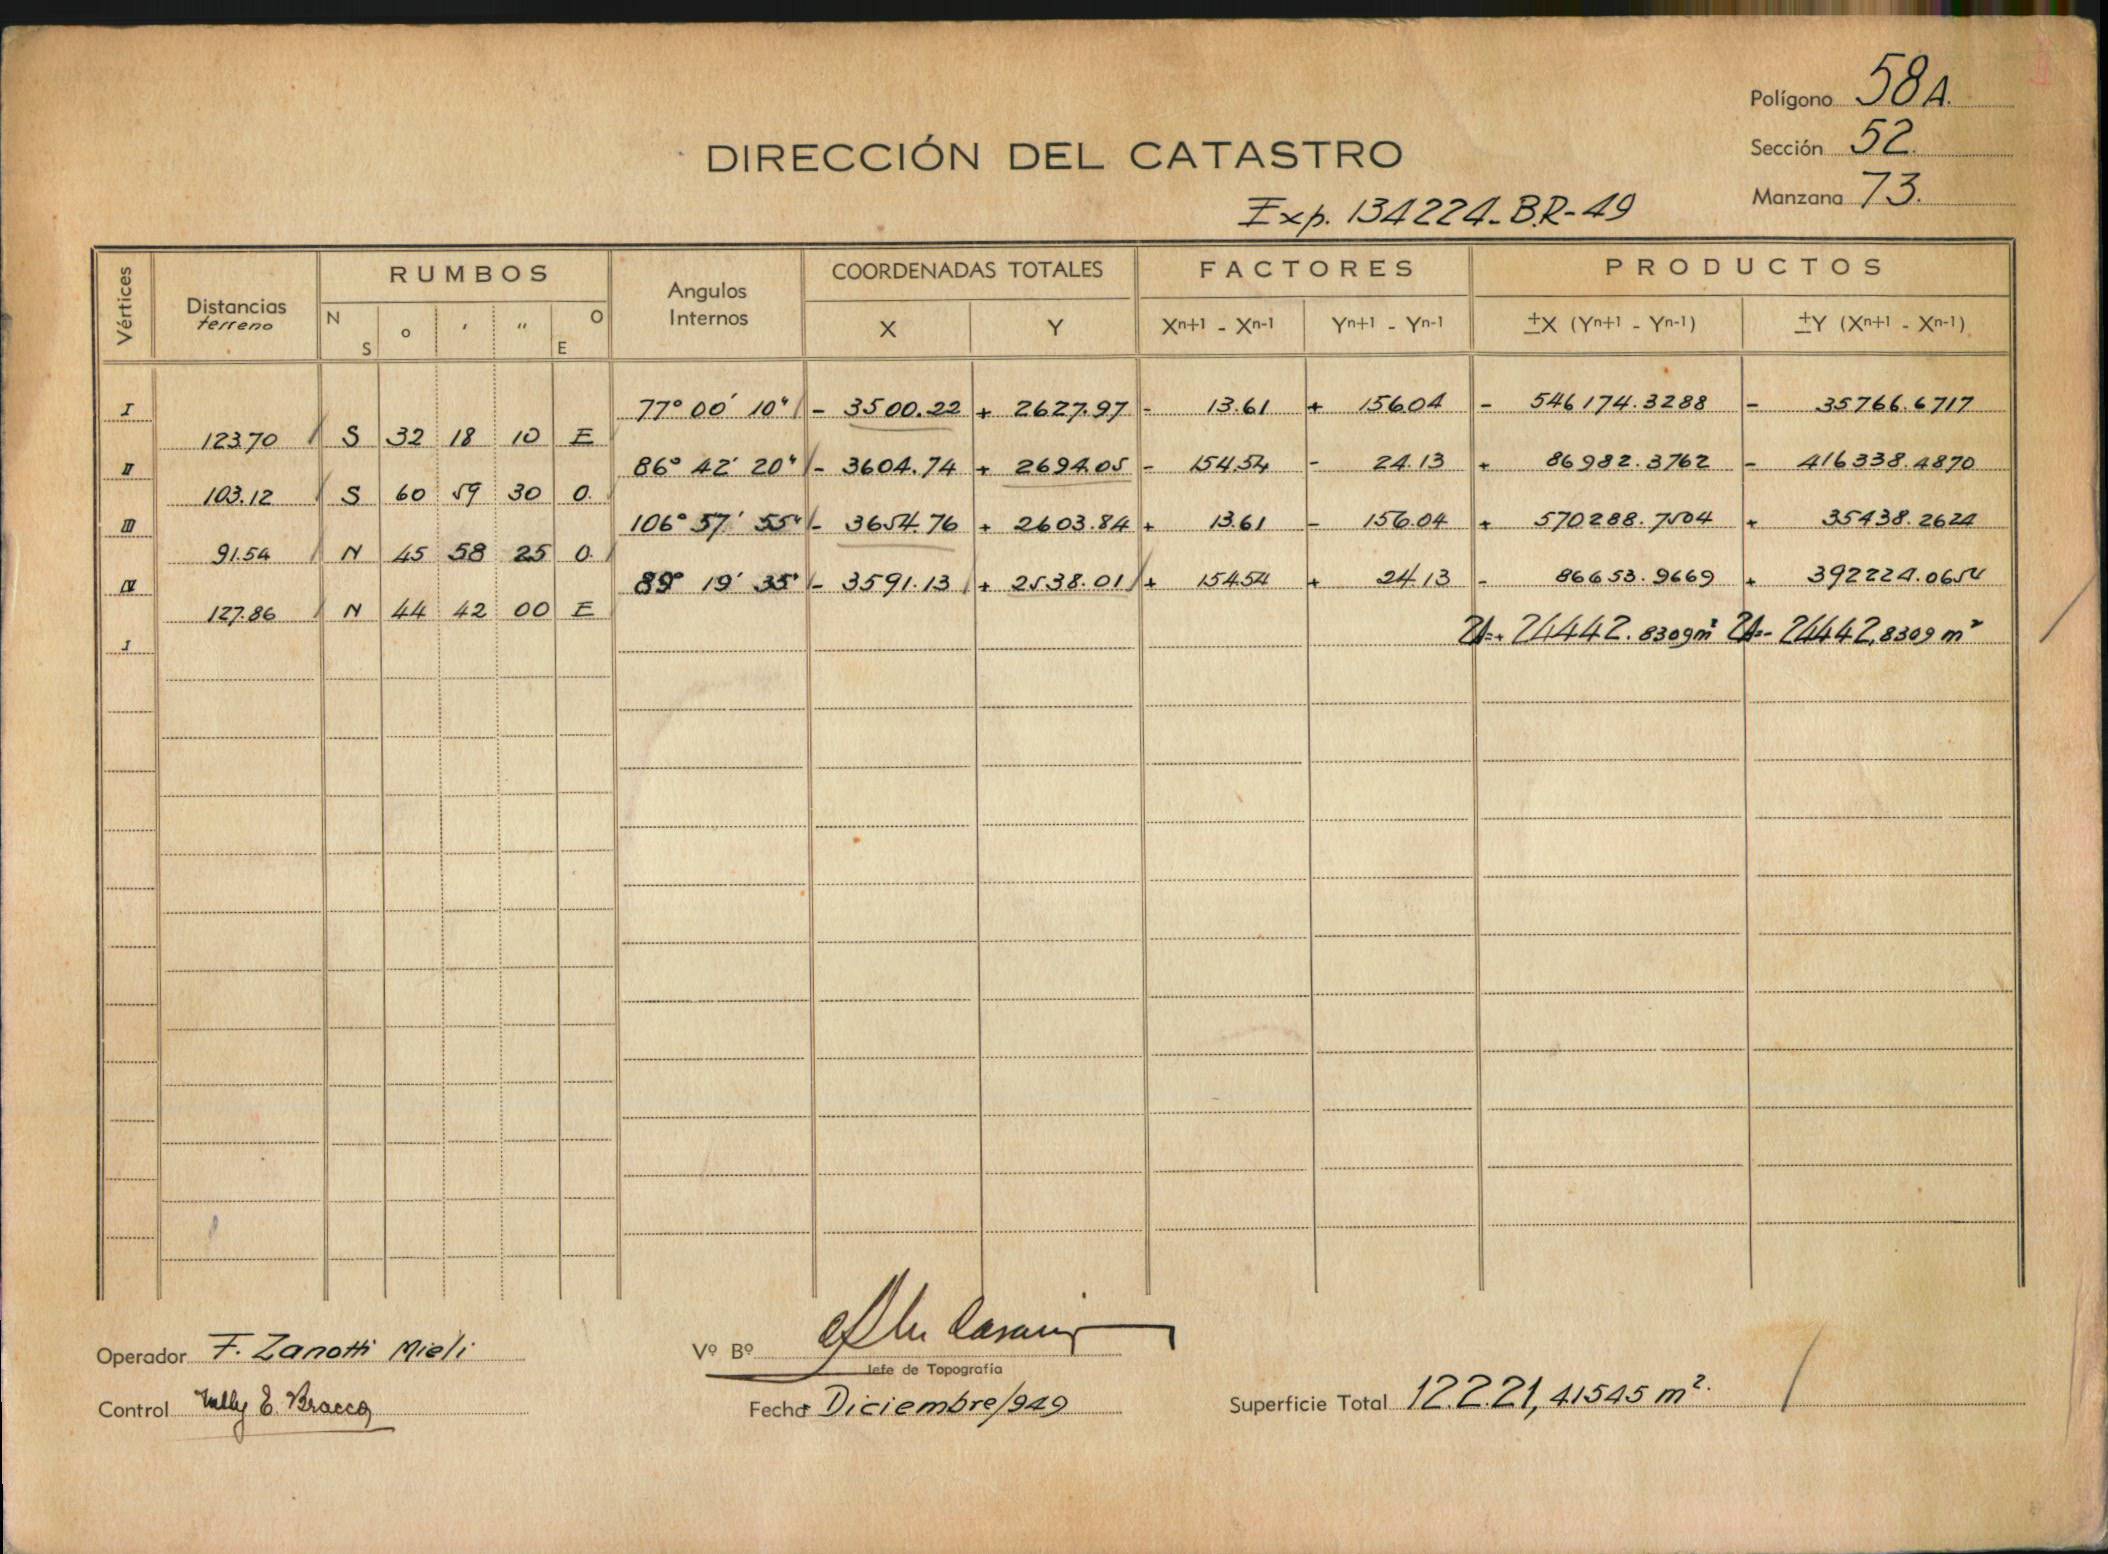 Polígono 58A.
DIRECCIÓN DEL CATASTRO
Sección 52.
Manzana 73.
Exp. 134224-B.R-49
Vértices Distancias terreno RUMBOS Angulos Internos COORDENADAS TOTALES FACTORES PRODUCTOS
N S o ′ ″ O E X Y Xn+1 - Xn-1 Yn+1 - Yn-1 ±X (Yn+1 - Yn-1) ±Y (Xn+1 - Xn-1)
I 77° 00′ 10″ - 3500.22 + 2627.97 - 13.61 + 156.04 - 546174.3288 - 35766.6717
123.70 S 32 18 10 E
II 86° 42′ 20″ - 3604.74 + 2694.05 - 154.54 - 24.13 + 86982.3762 - 416338.4870
103.12 S 60 59 30 O.
III 106° 57′ 55″ - 3654.76 + 2603.84 + 13.61 - 156.04 + 570288.7504 + 35438.2624
91.54 N 45 58 25 O.
IV 89° 19′ 35″ - 3591.13 + 2538.01 + 154.54 + 24.13 - 86653.9669 + 392224.0654
127.86 N 44 42 00 E
I 2A=+ 24442.8309 m² 2A=- 24442,8309 m²
Operador F. Zanotti Mieli
Vº Bº
Jefe de Topografía
Control E. Bracco
Fecha Diciembre/949
Superficie Total 12.221,41545 m².